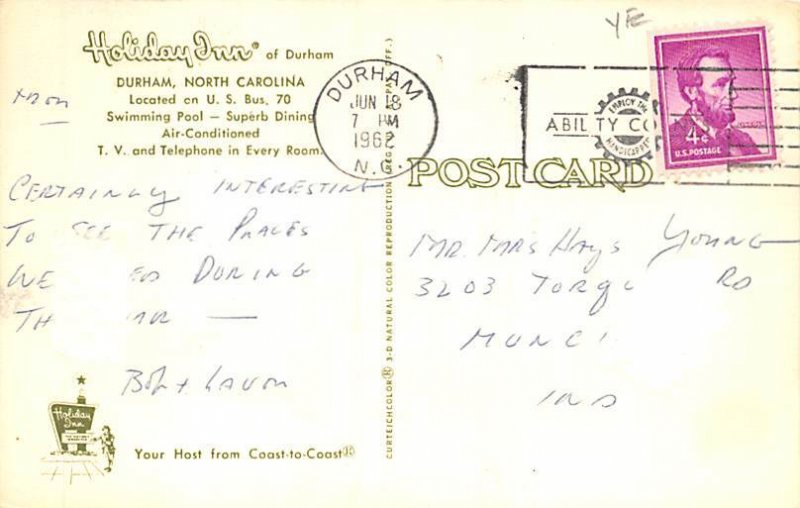 Holiday Inn® of Durham
DURHAM, NORTH CAROLINA
Located on U. S. Bus. 70
Swimming Pool — Superb Dining
Air-Conditioned
T. V. and Telephone in Every Room.
CERTAINLY INTERESTING
TO SEE THE PLACES
WE DURING
TH AR —
Bob + Lavon
Holiday Inn
Your Host from Coast-to-Coast
CURTEICHCOLOR® 3-D NATURAL COLOR REPRODUCTION (REG. U.S.A. PAT. OFF.)
YE
DURHAM
JUN 18
7 PM
1962
N.C.
EMPLOY THE
ABILITY CO
HANDICAPPED
4¢
U.S. POSTAGE
POST CARD
MR. MRS HAYS YOUNG
3203 TORQ RD
MUNCI
IND